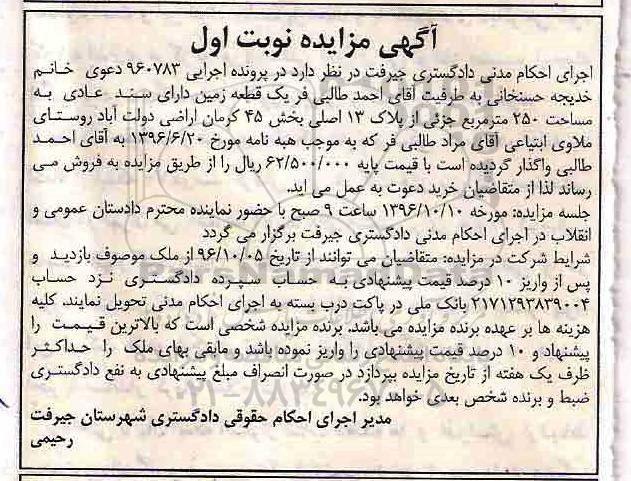 آگهی مزایده نوبت اول
اجرای احکام مدنی دادگستری جیرفت در نظر دارد در پرونده اجرایی ۹۶۰۷۸۳ دعوی خانم
خدیجه حسنخانی به طرفیت آقای احمد طالبی فر یک قطعه زمین دارای سند عادی به
مساحت ۲۵۰ مترمربع جزئی از پلاک ۱۳ اصلی بخش ۴۵ کرمان اراضی دولت آباد روستای
ملاوی ابتیاعی آقای مراد طالبی فر که به موجب هبه نامه مورخ ۱۳۹۶/۶/۲۰ به آقای احمد
طالبی واگذار گردیده است با قیمت پایه ۶۲/۵۰۰/۰۰۰ ریال را از طریق مزایده به فروش می
رساند لذا از متقاضیان خرید دعوت به عمل می اید.
جلسه مزایده: مورخه ۱۳۹۶/۱۰/۱۰ ساعت ۹ صبح با حضور نماینده محترم دادستان عمومی و
انقلاب در اجرای احکام مدنی دادگستری جیرفت برگزار می گردد
شرایط شرکت در مزایده: متقاضیان می توانند از تاریخ ۹۶/۱۰/۰۵ از ملک موصوف بازدید و
پس از واریز ۱۰ درصد قیمت پیشنهادی به حساب سپرده دادگستری نزد حساب
۲۱۷۱۲۹۲۸۳۹۰۰۴ بانک ملی در پاکت درب بسته به اجرای احکام مدنی تحویل نمایند. کلیه
هزینه ها بر عهده برنده مزایده می باشد. برنده مزایده شخصی است که بالاترین قیمت را
پیشنهاد و ۱۰ درصد قیمت پیشنهادی را واریز نموده باشد و مابقی بهای ملک را حداکثر
ظرف یک هفته از تاریخ مزایده بپردازد در صورت انصراف مبلغ پیشنهادی به نفع دادگستری
ضبط و برنده شخص بعدی خواهد بود.
مدیر اجرای احکام حقوقی دادگستری شهرستان جیرفت
رحیمی